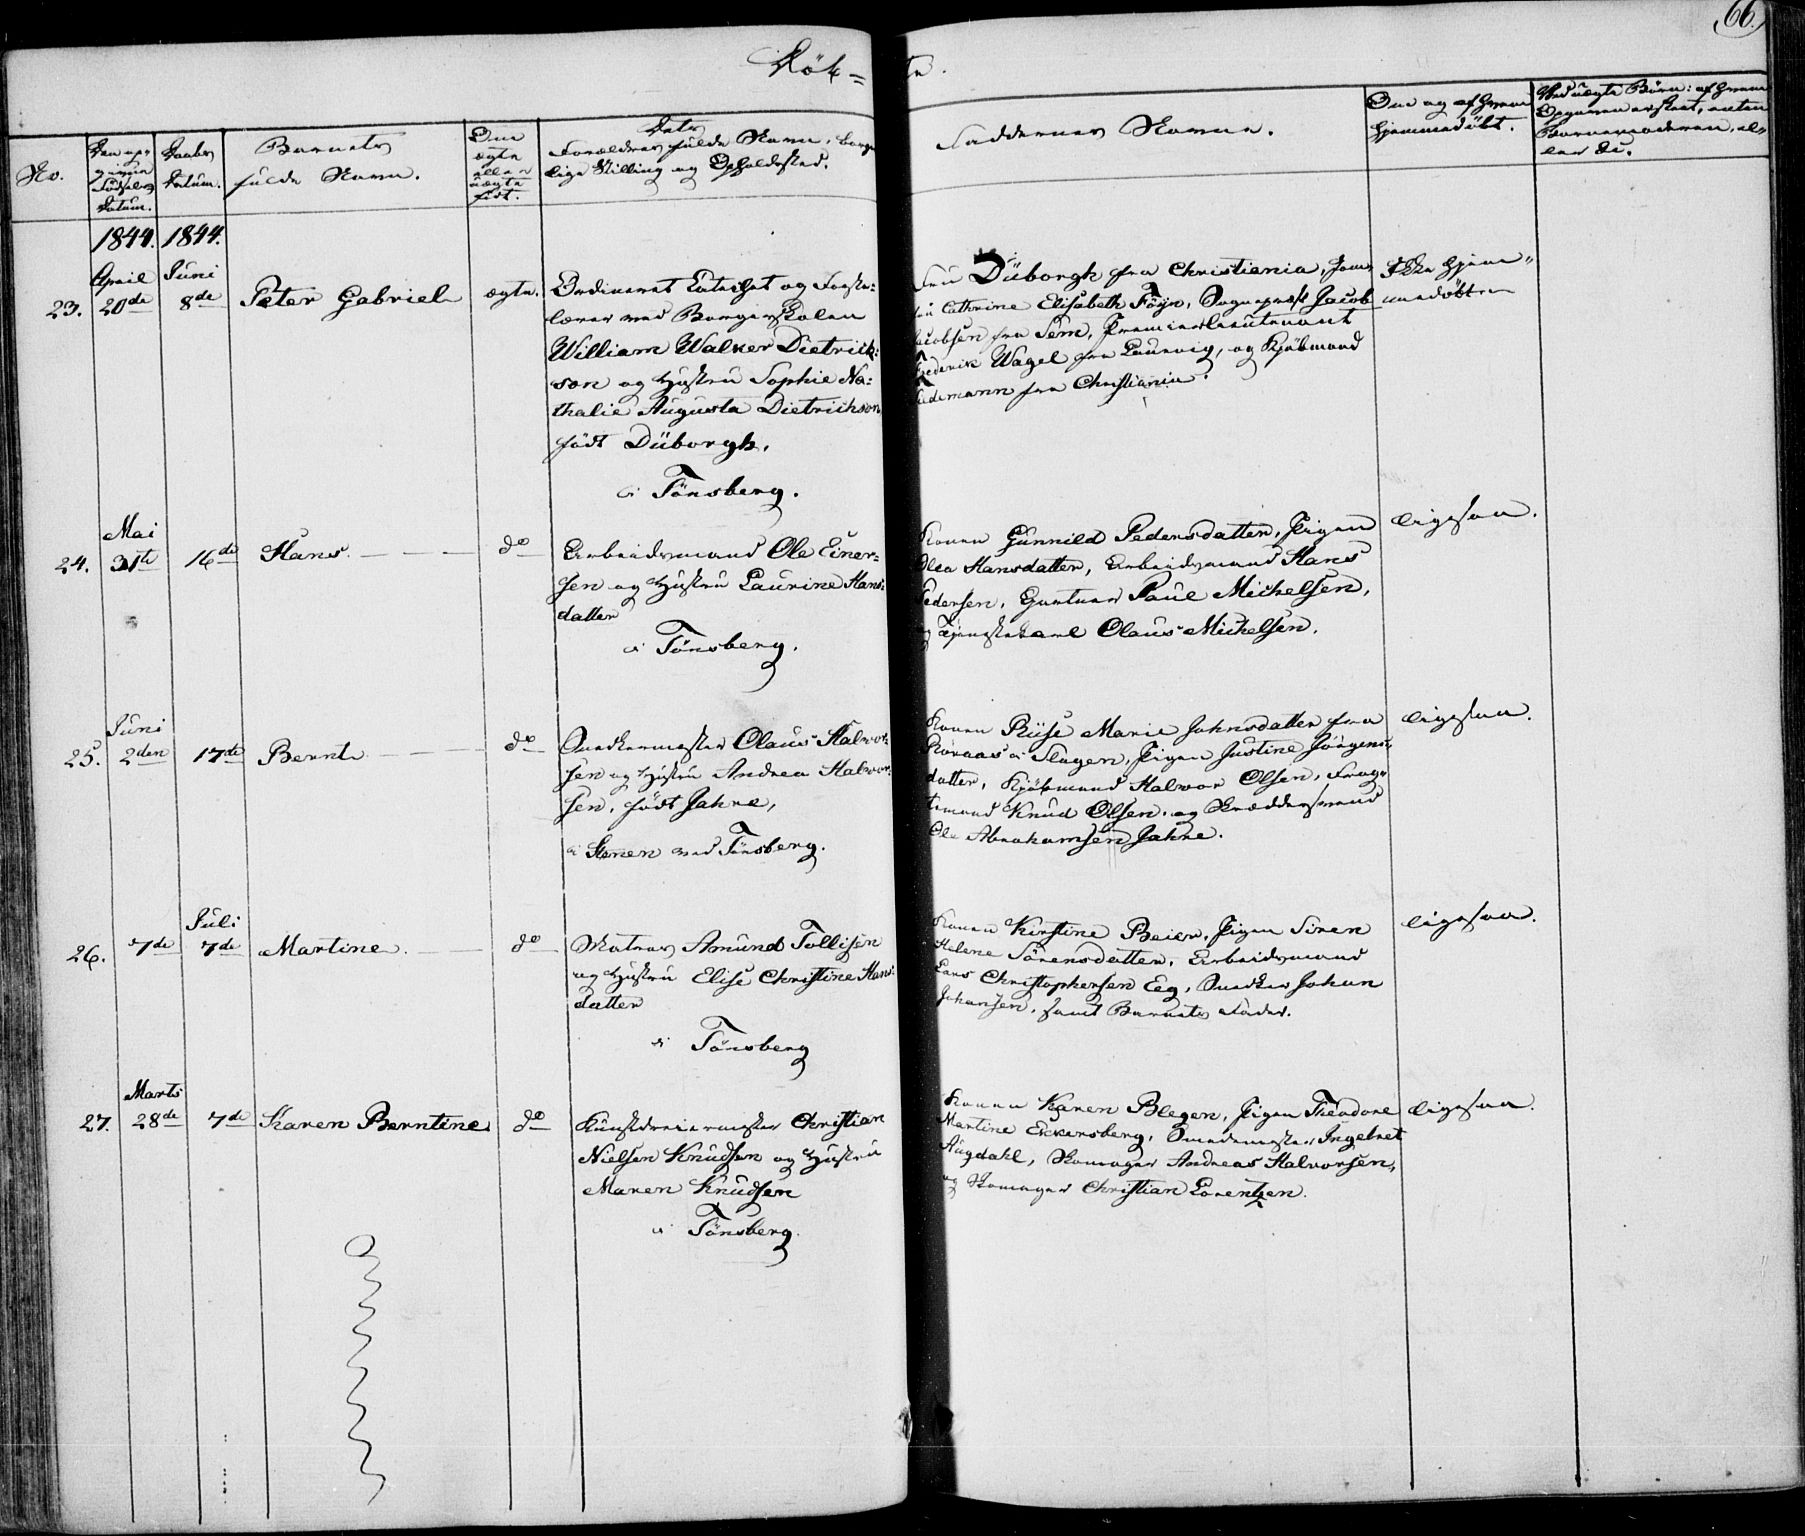 Døb=
te.
66.
No.
Den op-
givne
Fødsels
Datum.
Daabs
Datum.
Barnets
fulde Navn.
Om
ægte
eller
uægte
født.
Dets
Forældres fulde Navn, borger-
lige Stilling og Opholdsted.
Faddernes Navne.
Om og af hvem
hjemmedøbt.
Ved uægte Børn: af hvem
Opgaven er skeet, enten
Barnemoderen, el-
ler &c.
1844. 1844.
April Juni
23. 20de 8de Peter Gabriel ægte.
Ordineret Catechet og Første-
lærer ved Borgerskolen
William Walker Dietrich-
son og Hustru Sophie Na-
thalie Augusta Dietrichson
født Düborgh,
i Tönsberg.
Fru Düborgh fra Christiania, Jom-
fru Cathrine Elisabeth Föyn, Sognepræst Jacob
Jacobsen fra Sem, Premierlieutenant
Frederik Wagel fra Laurvig, og Kjøbmand
fra Christiania.
Ikke hjem-
medøbt
Mai
24. 31te 16de Hans. do
Arbeidsmand Ole Einer-
sen og Hustru Laurine Hans-
datter
i Tönsberg.
Konen Gunnild Pedersdatter, Pigen
Olea Hansdatter, Arbeidsmand Hans
Pedersen, Gartner Paul Michelsen,
og Tjenestekarl Olaus Michelsen.
ligesaa.
Juni
25. 2den 17de Bernt do
Snedkermester Olaus Halvor-
sen og Hustru Andrea Halvor-
sen, født Jahre,
i Stenen ved Tönsberg.
Konen Riise Marie Johnsdatter fra
Roraas i Slagen, Pigen Justine Jörgens-
datter, Kjøbmand Halvor Olsen, Frag-
temand Knud Olsen, og Skræddersvend
Ole Abrahamsen Jahre.
ligesaa.
Juli
26. 7de 7de Martine. do
Matros Amund Tollisen
og Hustru Elise Christine Hans-
datter
i Tönsberg
Konen Kirstine Beier, Pigen Siren
Helene Sörensdatter, Arbeidsmand
Lars Christophersen Eeg, Snedker Johan
Johansen, samt Barnets Fader.
ligesaa.
Marts
27. 28de 7de Karen Berntine do
Kunstdreiermester Christian
Nielsen Knudsen og Hustru
Maren Knudsen
i Tönsberg.
Konen Karen Blegen, Pigen Theodore
Martine Eckersberg, Smedemester Ingebret
Augdahl, Skomager Andreas Halvorsen,
og Skomager Christian Lorentzen.
ligesaa.